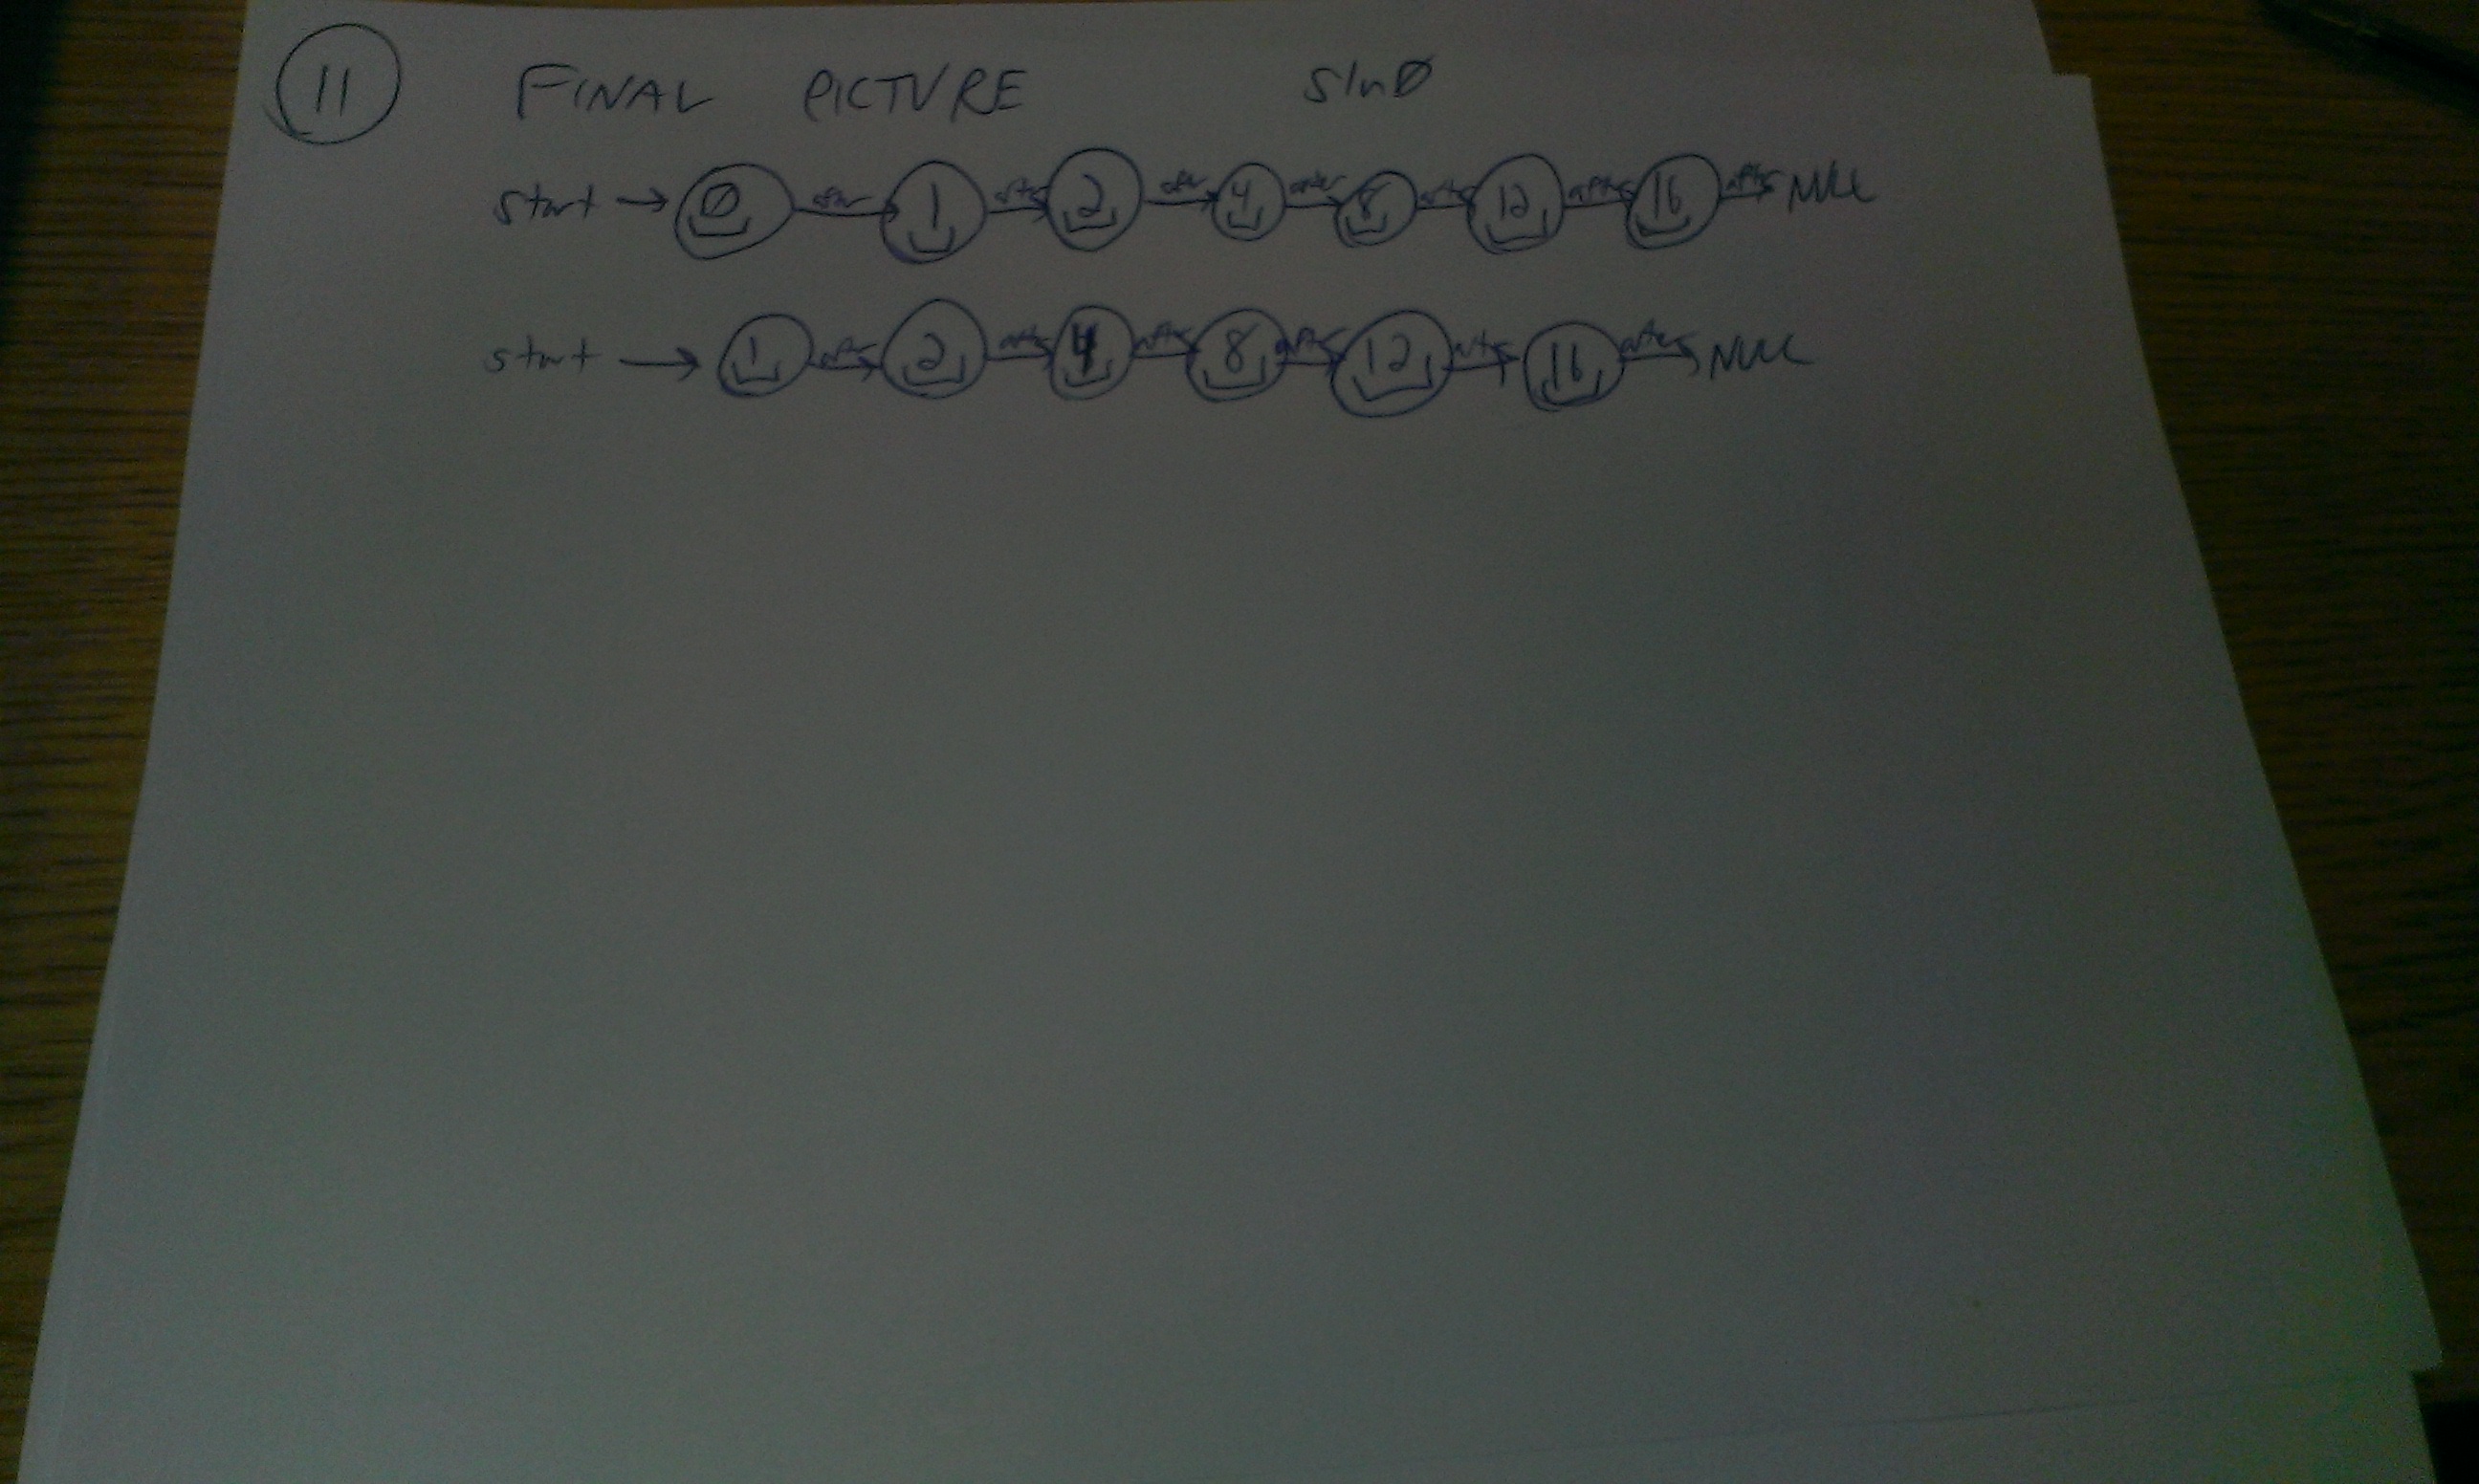 11 FINAL PICTURE sln0
start → 0 after 1 after 2 after 4 after 8 after 12 after 16 after NULL
start → 1 after 2 after 4 after 8 after 12 after 16 after NULL